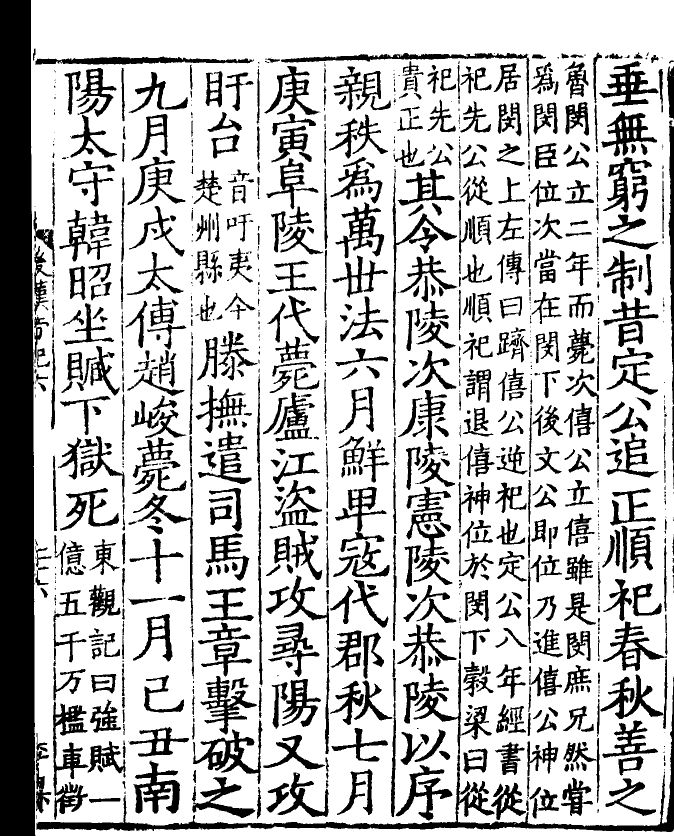 垂無窮之制昔定公追正順祀春秋善之
魯閔公立二年而薨次僖公立僖雖是閔庶兄然嘗
爲閔臣位次當在閔下後文公即位乃進僖公神位
居閔之上左傳曰躋僖公逆祀也定公八年經書從
祀先公從順也順祀謂退僖神位於閔下穀梁曰從
祀先公
貴正也
其令恭陵次康陵憲陵次恭陵以序
親秩爲萬世法六月鮮卑寇代郡秋七月
庚寅阜陵王代薨廬江盜賊攻尋陽又攻
盱台
音吁夷今
楚州縣也
滕撫遣司馬王章擊破之
九月庚戌太傅趙峻薨冬十一月己丑南
陽太守韓昭坐贓下獄死
東觀記曰強賦一
億五千万檻車徵
後漢書紀六